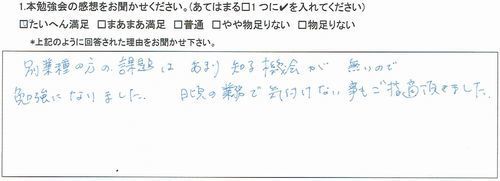 1.本勉強会の感想をお聞かせください。(あてはまる□1つに✔を入れてください)
☑たいへん満足 □まあまあ満足 □普通 □やや物足りない □物足りない
*上記のように回答された理由をお聞かせ下さい。
別業種の方の課題は あまり知る機会が 無いので
勉強になりました。 日頃の業務で気付けない事もご指摘頂きました。